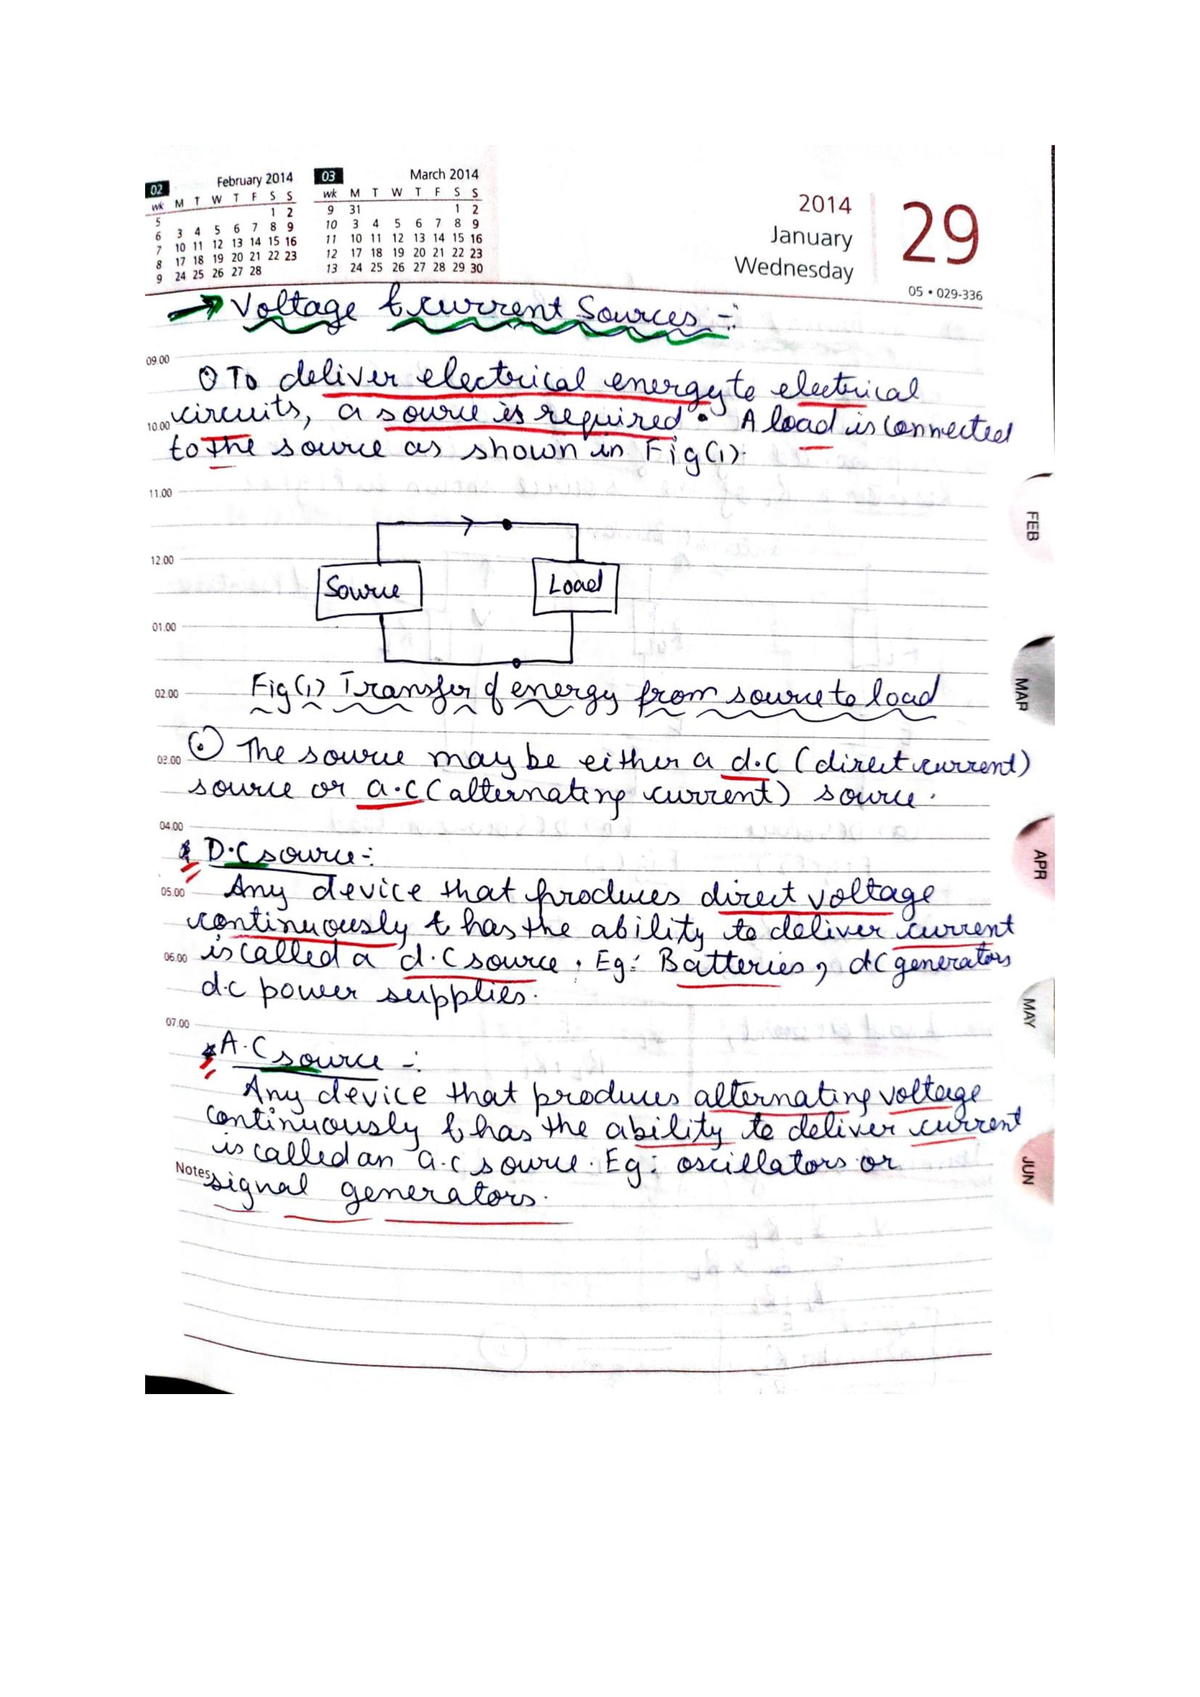 02 February 2014
wk M T W T F S S
5 1 2
6 3 4 5 6 7 8 9
7 10 11 12 13 14 15 16
8 17 18 19 20 21 22 23
9 24 25 26 27 28
03 March 2014
wk M T W T F S S
9 31 1 2
10 3 4 5 6 7 8 9
11 10 11 12 13 14 15 16
12 17 18 19 20 21 22 23
13 24 25 26 27 28 29 30
2014
January
Wednesday
29
05 • 029-336
→ Voltage & current Sources -:
09.00
⊙ To deliver electrical energy to electrical
circuits, a source is required. A load is connected
10.00
to the source as shown in Fig(1).
11.00
12.00
Source Load
01.00
02.00 Fig(1) Transfer of energy from source to load
⊙ The source may be either a d.c (direct current)
03.00
source or a.c (alternating current) source.
04.00
* D.C source -:
05.00 Any device that produces direct voltage
continuously & has the ability to deliver current
06.00 is called a d.c source. Eg: Batteries, dc generators
d.c power supplies.
07.00
* A.C source -:
Any device that produces alternating voltage
continuously & has the ability to deliver current
is called an a.c source. Eg: oscillators or
Notes signal generators.
FEB
MAR
APR
MAY
JUN